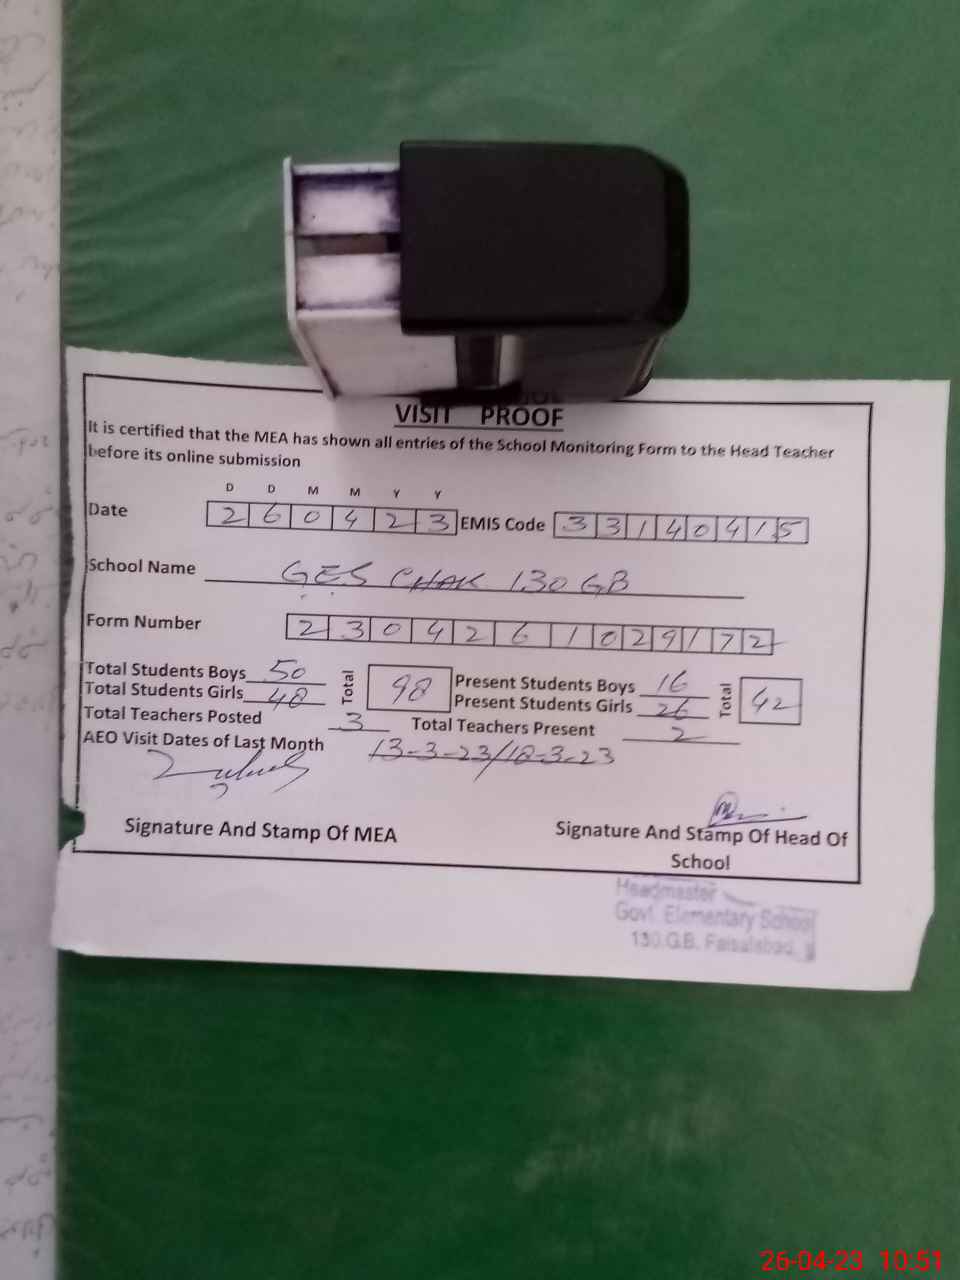 VISIT PROOF
It is certified that the MEA has shown all entries of the School Monitoring Form to the Head Teacher
before its online submission
D D M M Y Y
Date 2 6 0 4 2 3 EMIS Code 3 3 1 4 0 4 1 5
School Name GES CHAK 130 GB
Form Number 2 3 0 4 2 6 1 0 2 9 1 7 2
Total Students Boys 50 Total 98 Present Students Boys 16 Total 42
Total Students Girls 48 Present Students Girls 26
Total Teachers Posted 3 Total Teachers Present 2
AEO Visit Dates of Last Month 13-3-23/18-3-23
Signature And Stamp Of MEA Signature And Stamp Of Head Of
School
Headmaster
Govt. Elementary School
130.G.B. Faisalabad.
26-04-23 10:51